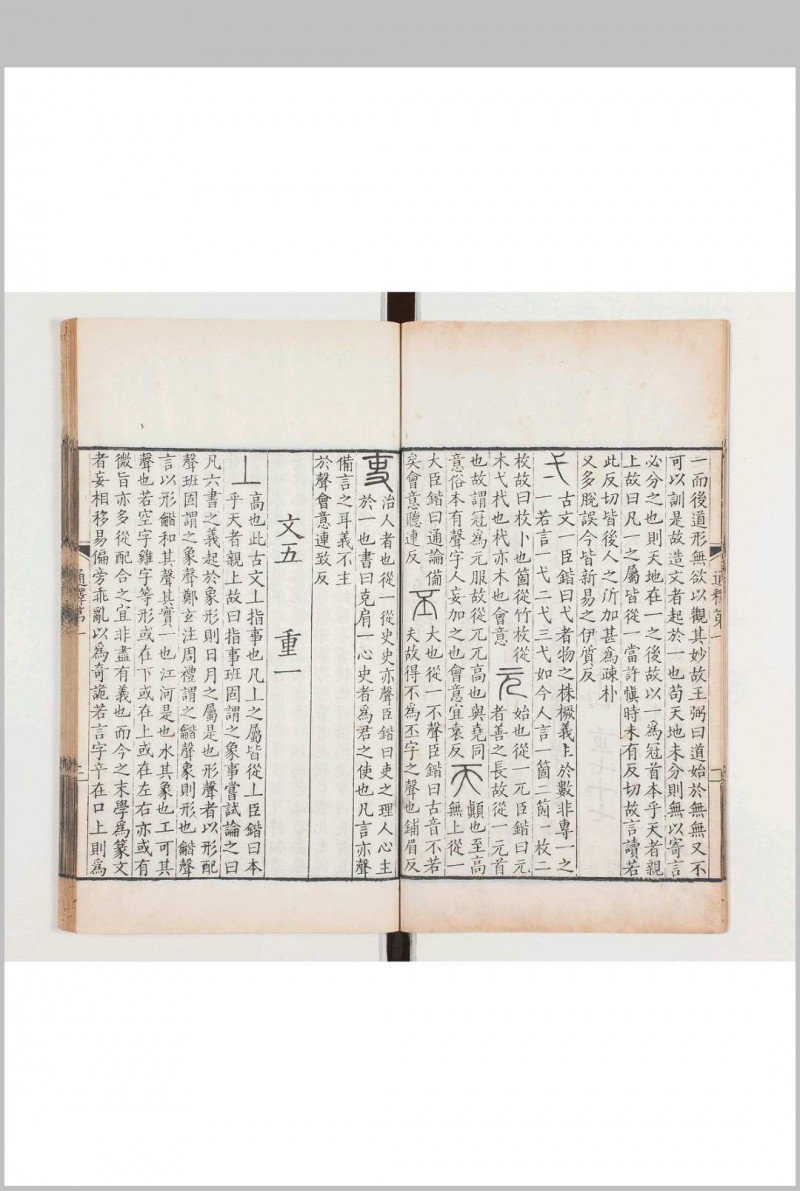 一而後道形無欲以觀其妙故王弼曰道始於無無又不
可以訓是故造文者起於一也苟天地未分則無以寄言
必分之也則天地在一之後故以一爲冠首本乎天者親
上故曰凡一之屬皆從一當許愼時未有反切故言讀若
此反切皆後人之所加甚爲疎朴
又多脫誤今皆新易之伊質反
弌古文一臣鍇曰弋者物之株橛義上於數非專一之
一若言一弋二弋三弋如今人言一箇二箇一枚二
枚故曰枚卜也箇從竹枚從
木弋杙也杙亦木也會意
元始也從一元臣鍇曰元
者善之長故從一元首
也故謂冠爲元服故從兀兀高也與堯同
意俗本有聲字人妄加之也會意宜袁反
天顚也至高
無上從一
大臣鍇曰通論備
矣會意聽連反
丕大也從一不聲臣鍇曰古音不若
夫故得不爲丕字之聲也鋪眉反
通釋第一
吏治人者也從一從史史亦聲臣鍇曰吏之理人心主
於一也書曰克肩一心史者爲君之使也凡言亦聲
備言之耳義不主
於聲會意連致反
文五 重一
丄高也此古文丄指事也凡丄之屬皆從丄臣鍇曰本
乎天者親上故曰指事班固謂之象事嘗試論之曰
凡六書之義起於象形則日月之屬是也形聲者以形配
聲班固謂之象聲鄭玄注周禮謂之龤聲象則形也龤聲
言以形龤和其聲其實一也江河是也水其象也工可其
聲也若空字雞字等形或在下或在上或在左右亦或有
微旨亦多從配合之宜非盡有義也而今之末學爲篆文
者妄相移易偏旁乖亂以爲奇詭若言字䇂在口上則爲
通釋第一